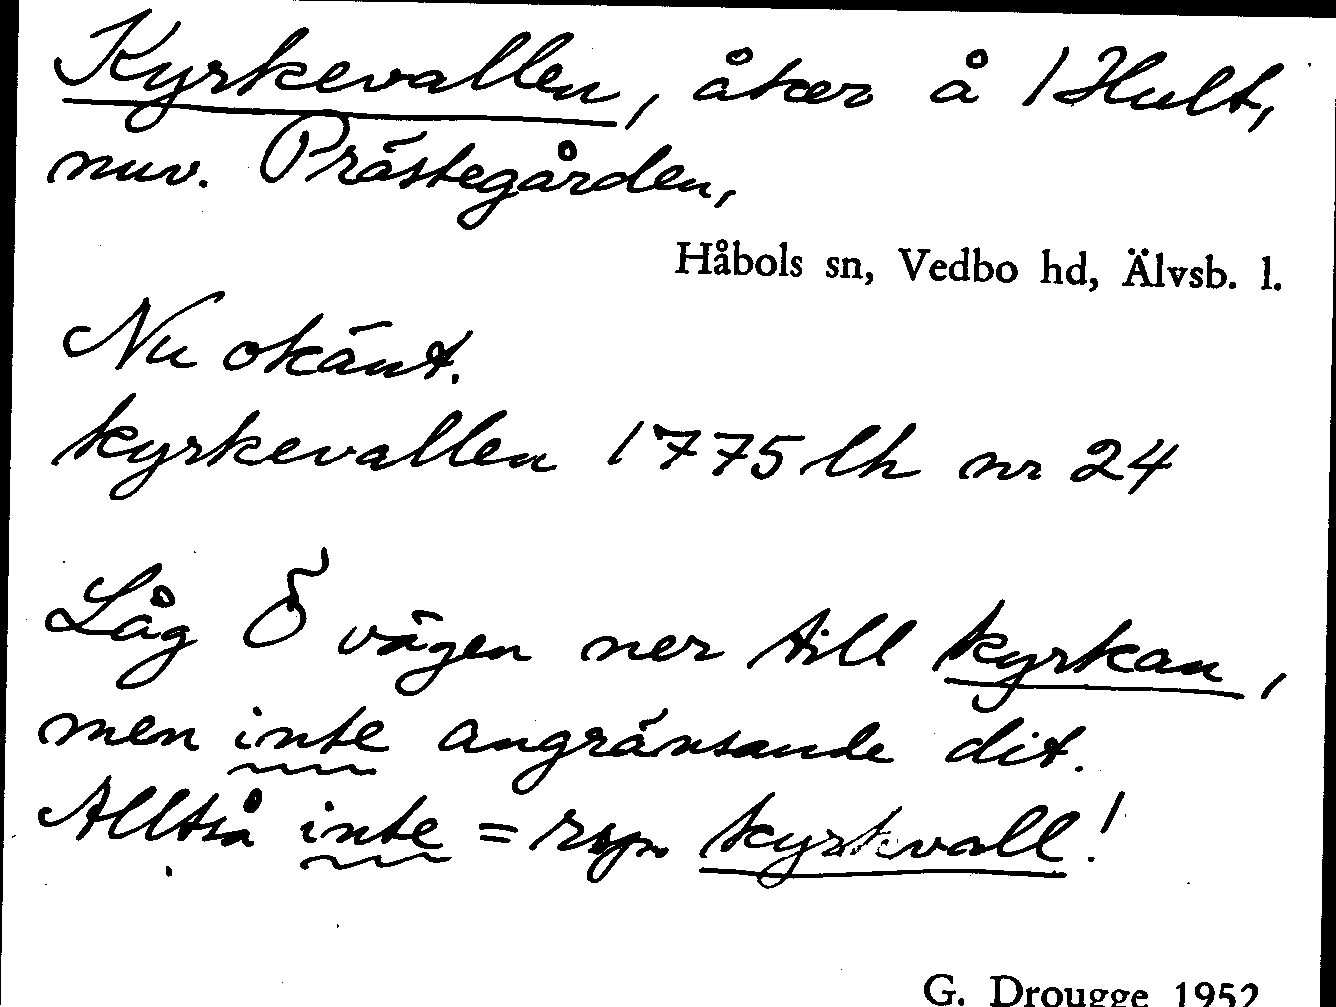 Kyrkevallen, åker å 1 Hult,
nuv. Prästegården,
Håbols sn, Vedbo hd, Älvsb. l.
Nu okänt.
kyrkevallen 1775 lh nr 24
Låg Ö vägen ner till kyrkan,
men inte angränsande dit.
Alltså inte = kyrkvall!
G. Drougge 1952